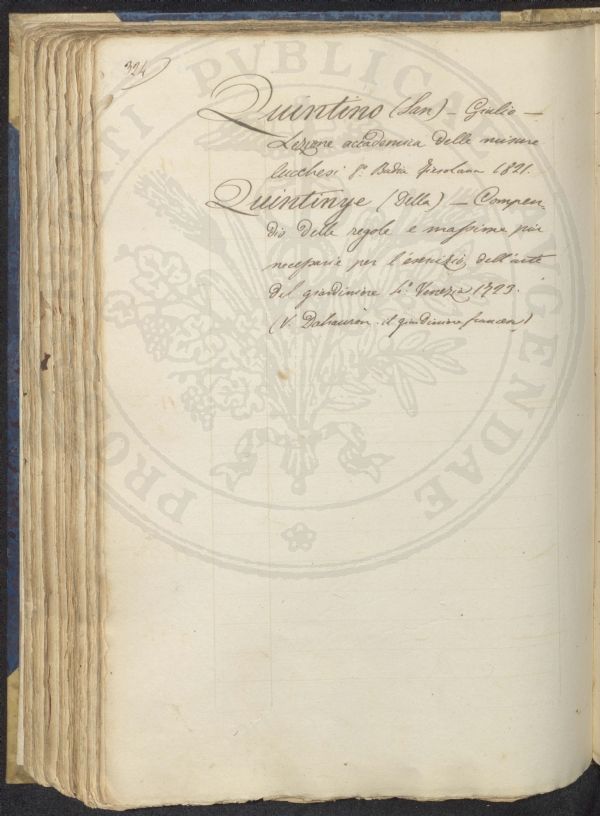 324
Quintino (San) — Giulio —
Lezione accademica delle misure
lucchesi 8.° Badia Fiesolana 1821.
Quintinye (Della) — Compen-
dio delle regole e massime più
necessarie per l'esercizio dell'arte
del giardiniere 4.° Venezia 1723.
(V. Dahauron il giardiniere francese)
PROSPERITATI PUBLICAE AUGENDAE